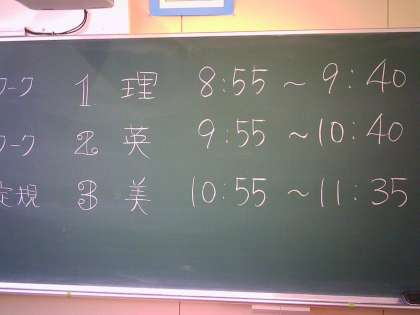 ワーク 1 理 8:55 〜 9:40
ワーク 2 英 9:55 〜 10:40
定規 3 美 10:55 〜 11:35